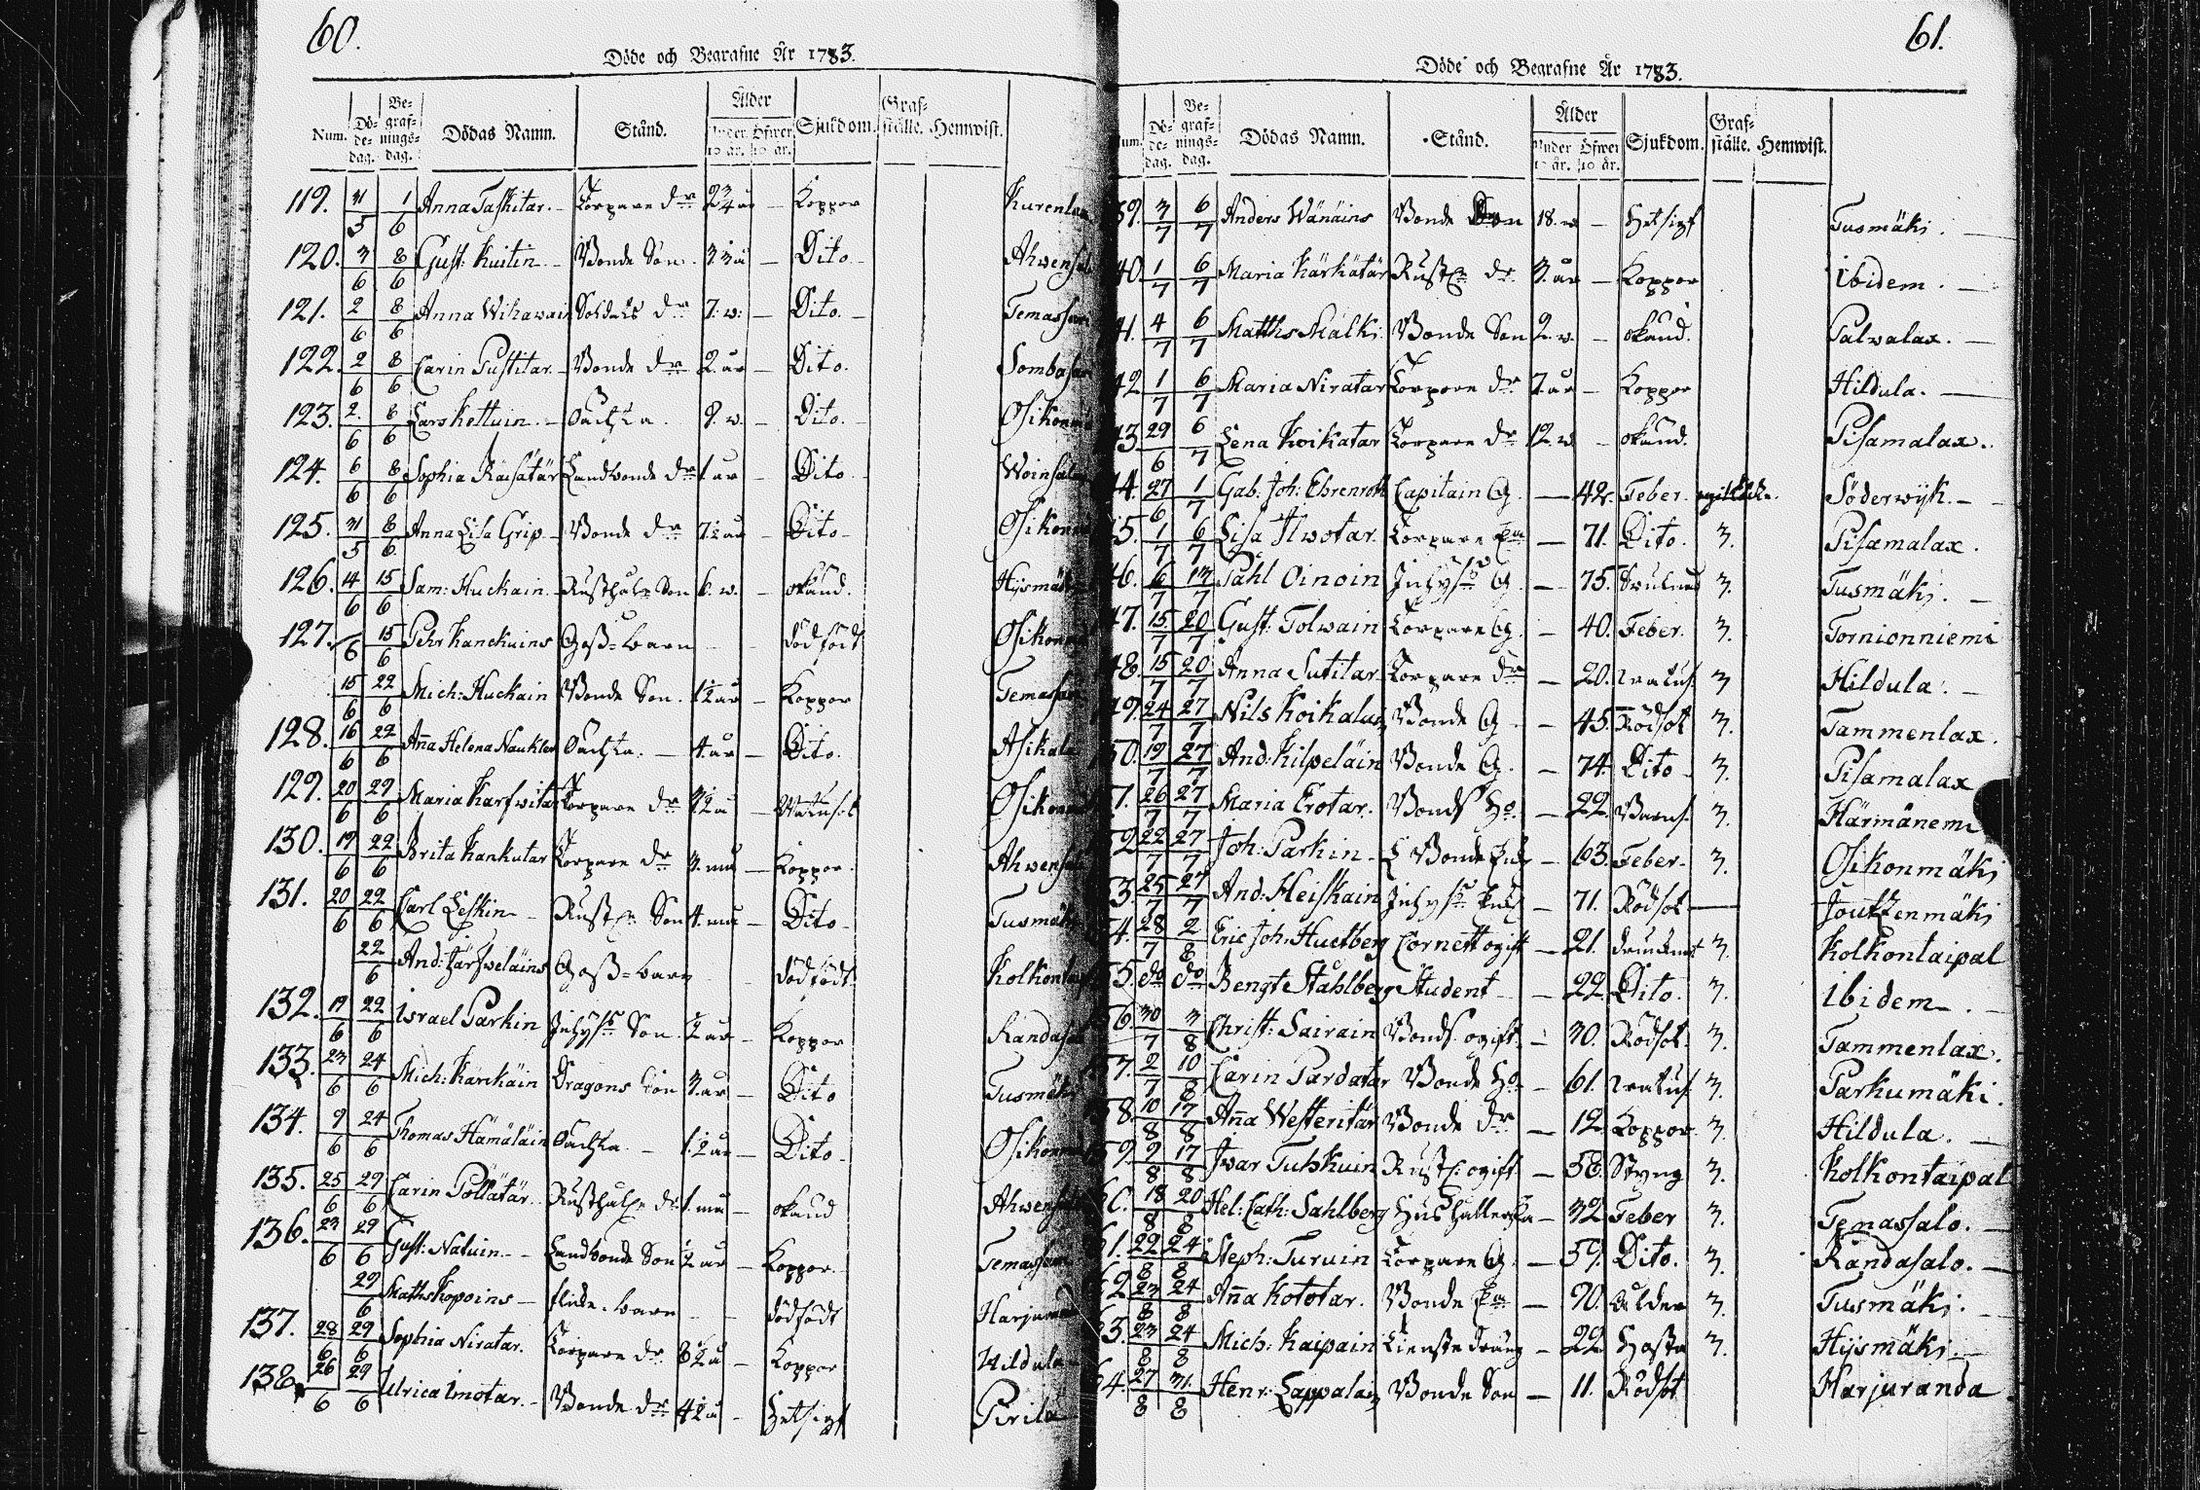 60.
Döde och Begrafne År 1783.
Num. Dö-de-dag. Be-graf-nings-dag. Dödas Namn. Stånd. Ålder Under 10 år. Öfwer 10 år. Sjukdom. Graf-ställe. Hemwist.
119. 31/5 1/6 Anna Taskitar. Torpare dr 2 3/4 år Koppor Kurenlax
120. 3/6 8/6 Gust: Kuitin Bonde Son 3. Dito Ahwensalo
121. 2/6 8/6 Anna Wihawain Soldats dr 7. w: Dito. Temassari
122. 2/6 8/6 Carin Pustitar Bonde dr 2. år Dito. Sombasari
123. 2/6 8/6 Lars Kettuin 9. w. Dito. Osikonmä
124. 6/6 8/6 Sophia Räisätär Landbonde dr 1 år Dito Woinsalm
125. 31/5 8/6 Anna Lisa Grip Bonde dr Dito Osikonmä
126. 14/6 15/6 Sam: Huckain Rusthåls Son 6. w. okänd. Hijsmäki
127. /6 15/6 Pehr Kanckuins Goss-barn dödfödt Osikonmä
15/6 22/6 Mich: Huckain Bonde Son. 1 1/2 år Koppor Temassari
128. 16/6 22/6 Aña Helena Naukler 4. år Dito. Asikala
129. 20/6 29/6 Maria Karfwitar Torpare dr Osikonmä
130. 19/6 22/6 Brita Kankutar Torpare dr 3. må Koppor Ahwensalo
131. 20/6 22/6 Carl Leskin Rusth Son 4. må Dito Tusmäki
22/6 And: Järfweläins Goss-barn dödfödt Kolkontaipal
132. 19/6 22/6 Israel Parkin Inhyss Son 1/2 år Koppor Randasalo
133. 23/6 24/6 Mich: Kärckäin Dragons Son 3. år Dito Tusmäki
134. 9/6 24/6 Thomas Hämäläin 1 1/2 år Dito Osikonmä
135. 25/6 29/6 Carin Pöllätär Rusthåls dr 1. må okänd Ahwensalo
136. 23/6 29/6 Gust: Natuin Landbonde Son 1/2 år Koppor. Temassari
29/6 Maths Kopoins flicke-barn dödfödt Harjuranda
137. 28/6 29/6 Sophia Niratar. Torpare dr Koppor Hildula
138. 26/6 29/6 Ulrica Imotar. Bonde dr 4 1/2 å Hetsigf Pirilä
61.
Döde och Begrafne År 1783.
Num. Dö-de-dag. Be-graf-nings-dag. Dödas Namn. Stånd. Ålder Under 10 år. Öfwer 10 år. Sjukdom. Graf-ställe. Hemwist.
39. 3/7 6/7 Anders Wänäins Bonde Son 18. w Hetsigf Tusmäki.
40. 1/7 6/7 Maria Kärkätär Rusth dr 3. år Koppor Ibidem.
41. 4/7 6/7 Matths Malki Bonde Son 2. w. okänd. Palwalax.
42. 1/7 6/7 Maria Niratar Torpare dr 7. år Koppor Hildula.
43. 29/6 6/7 Lena Koikatar Torpare dr 12. w okänd. Pisamalax.
44. 27/6 1/7 Gab: Joh: Ehrenroth Capitain G. 42. Feber. Söderwijk.
45. 1/7 6/7 Lisa Ilwotar. Torpare Ea 71. Dito. 3. Pisamalax.
46. 6/7 13/7 Påhl Oinoin Inhyss G 75. 3. Tusmäki.
47. 15/7 20/7 Gust: Tolwain Torpare G. 40. Feber. 3. Tornionniemi
48. 15/7 20/7 Anna Sutitar Torpare dr 20. 3. Hildula.
49. 24/7 27/7 Nils Koikalain Bonde G 45. Rödsot 3. Tammenlax.
50. 19/7 27/7 And: Kilpeläin Bonde G. 74. Dito 3. Pisamalax
51. 26/7 27/7 Maria Erotar. Bonds Ho. 22. Barns. 3. Härmänemi
52. 22/7 27/7 Joh: Parkin 63. Feber 3. Osikonmäki
53. 25/7 27/7 And: Heiskain 71. Rödsot Joutzenmäki
54. 28/7 2/8 Eric Joh: Hultberg Cornett ogift 21. drunknat 3. Kolkontaipal
55. do do Bengt Ståhlberg Student 22. Dito. 3. Ibidem.
56. 30/7 3/8 Christ: Sairain Bonds. ogift. 30. Rödsot. 3. Tammenlax.
57. 2/7 10/8 Carin Pardatar Bonde Ho 61. 3. Parkumäki.
58. 10/8 17/8 Aña Westeritär Bonde dr 12. Koppor. 3. Hildula.
59. 9/8 17/8 Iwar Tuhkuin Rusth: ogift 58. Styng 3. Kolkontaipal
60. 18/8 20/8 Hel: Cath: Sahlberg Hushållerska 32. Feber 3. Temassalo.
61. 22/8 24/8 Steph: Turuin Torpare G. 59. Dito. 3. Randasalo.
62. 23/8 24/8 Aña Kototar. Bonde Ea 90. Ålder 3. Tusmäki.
63. 23/8 24/8 Mich: Kaipain Tienstedräng 22. Hosta 3. Hijsmäki.
64. 27/8 31/8 Henr: Lappalain Bonde Son 11. Rödsot Harjuranda